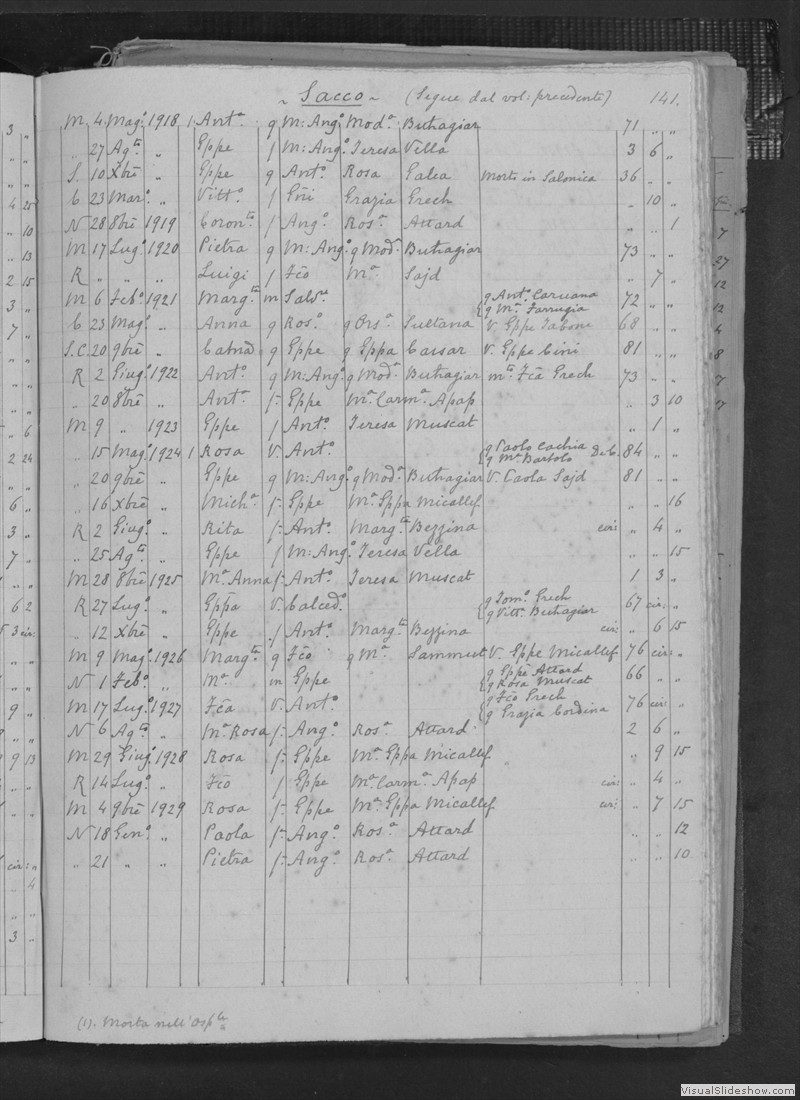 ~ Sacco ~ (Segue dal vol: precedente) 141.
M 4 Mag.º 1918 1 Ant.ª q M: Ang.º Mod.ª Buhagiar 71 " "
" 27 Ag.to " Eppe f M: Ang.º Teresa Vella 3 6 "
S. 10 Xbre " Eppe q Ant.º Rosa Galea Morto in Salonica 36 " "
C 23 Mar.º " Vitt.º f Gio Grazia Grech " 10 "
N 28 8bre 1919 Coron.ta f Ang.º Ros.ª Attard " " 1
M 17 Lug.º 1920 Pietra q M: Ang.º q Mod.ª Buhagiar 73 " "
R " " " Luigi f Fco M.ª Sajd " 7 "
M 6 Feb.º 1921 Marg.ta m Salv.e { q Ant.º Caruana q M.ª Farrugia 72 " "
C 23 Mag.º " Anna q Ros.º q Ors.ª Sultana V. Eppe Tabone 68 " "
S.C. 20 9bre " Catna q Eppe q Eppa Cassar V. Eppe Cini 81 " "
R 2 Giug.º 1922 Ant.º q M: Ang.º q Mod.ª Buhagiar m.to Fca Grech 73 " "
" 20 8bre " Ant.ª f. Eppe M.ª Carm.ª Apap " 3 10
M 9 " 1923 Eppe f Ant.º Teresa Muscat " 1 "
" 15 Mag.º 1924 1 Rosa V. Ant.º { q Paolo Cachia q M.ª Bartolo DeC. 84 " "
" 20 9bre " Eppe q M: Ang.º q Mod.ª Buhagiar V. Paola Sajd 81 " "
" 16 Xbre " Mich.ª f. Eppe M.ª Eppa Micallef " " 16
R 2 Giug.º " Rita f. Ant.º Marg.ta Bezzina cir: " 4 "
" 25 Ag.to " Eppe f M: Ang.º Teresa Vella " " 15
M 28 8bre 1925 M.ª Anna f. Ant.º Teresa Muscat 1 3 "
R 27 Lug.º " Eppa V. Calced.º { q Tom.º Grech q Vitt.ª Buhagiar 67 cir: "
" 12 Xbre " Eppe f Ant.º Marg.ta Bezzina cir: " 6 15
M 9 Mag.º 1926 Marg.ta q Fco q M.ª Sammut V. Eppe Micallef 76 cir: "
N 1 Feb.º " M.ª m Eppe { q Eppe Attard q Rosa Muscat 66 " "
M 17 Lug.º 1927 Fca V. Ant.º { q Fco Grech q Grazia Cordina 76 cir: "
N 6 Ag.to " M.ª Rosa f. Ang.º Ros.ª Attard 2 6 "
M 29 Giug.º 1928 Rosa f. Eppe M.ª Eppa Micallef " 9 15
R 14 Lug.º " Fco f Eppe M.ª Carm.ª Apap cir: " 4 "
M 4 9bre 1929 Rosa f. Eppe M.ª Eppa Micallef cir: " 7 15
N 18 Gen.º " Paola f. Ang.º Ros.ª Attard " " 12
" 21 " " Pietra f. Ang.º Ros.ª Attard " " 10
(1). Morta nell'Osp.le
VisualSlideshow.com